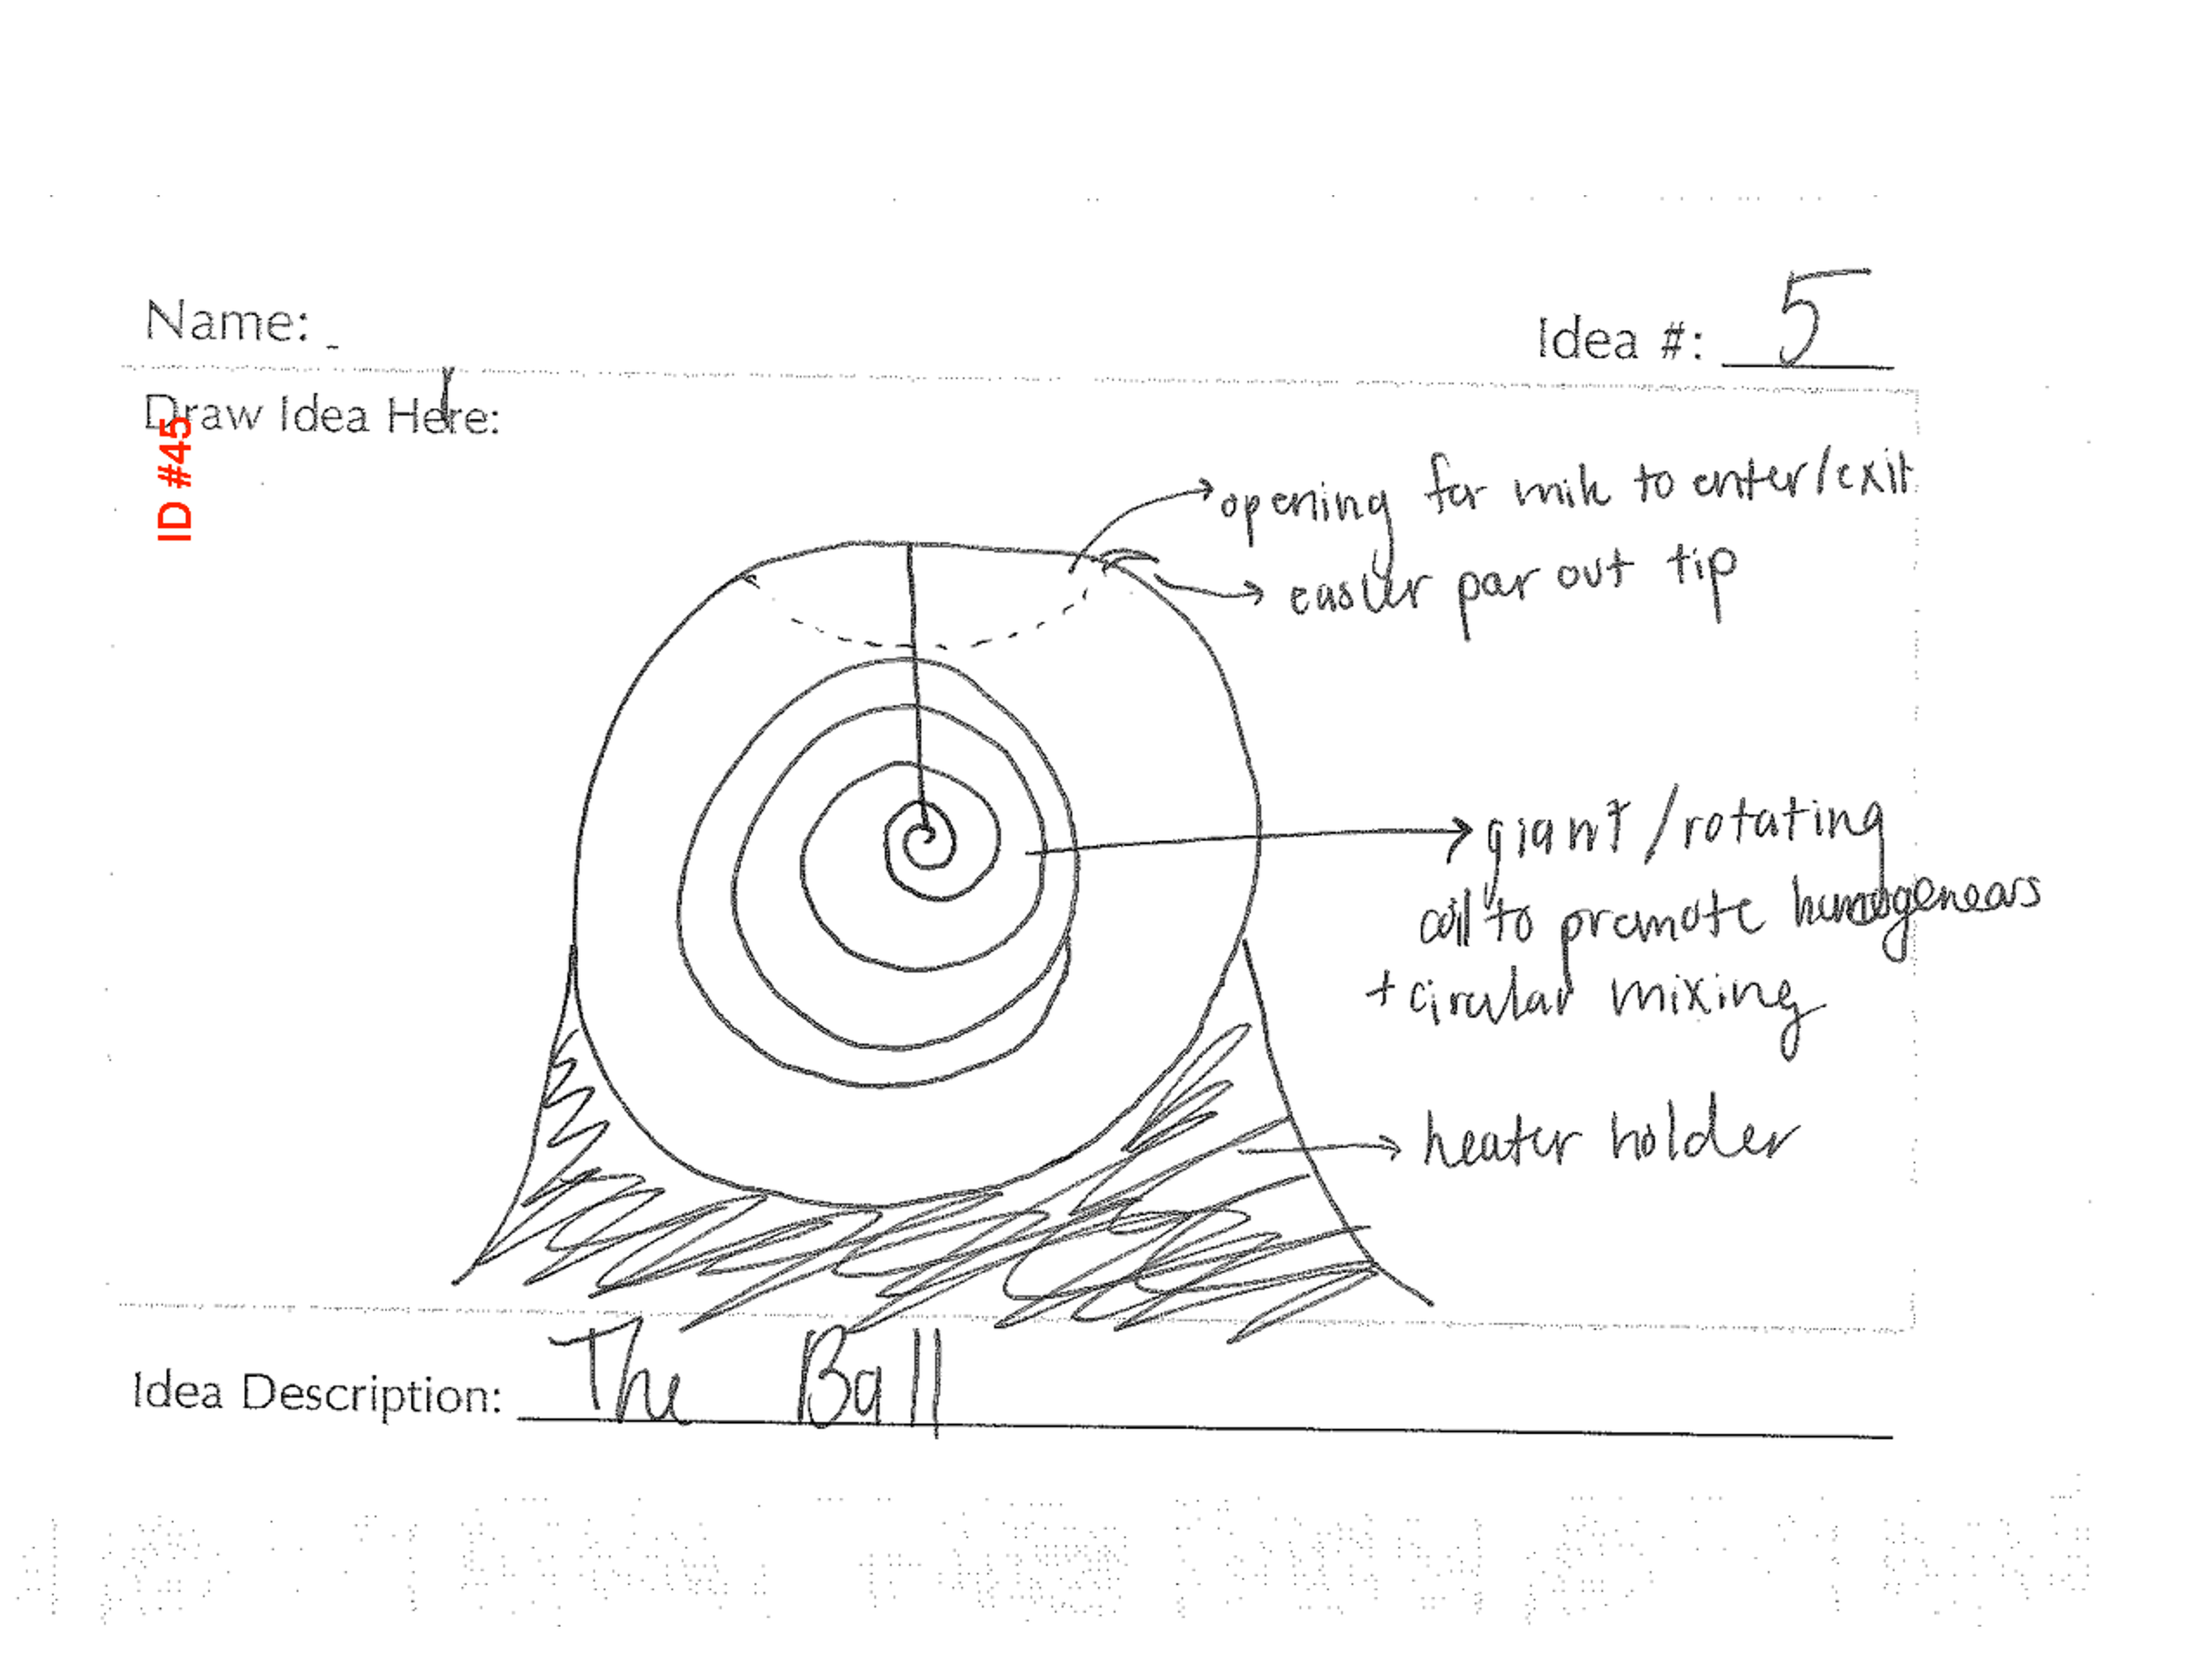 Name:
Idea #: 5
Draw Idea Here:
ID #45
opening for milk to enter/exit
easier pour out tip
giant/rotating
coil to promote homogeneous
+ circular mixing
heater holder
Idea Description: The Ball